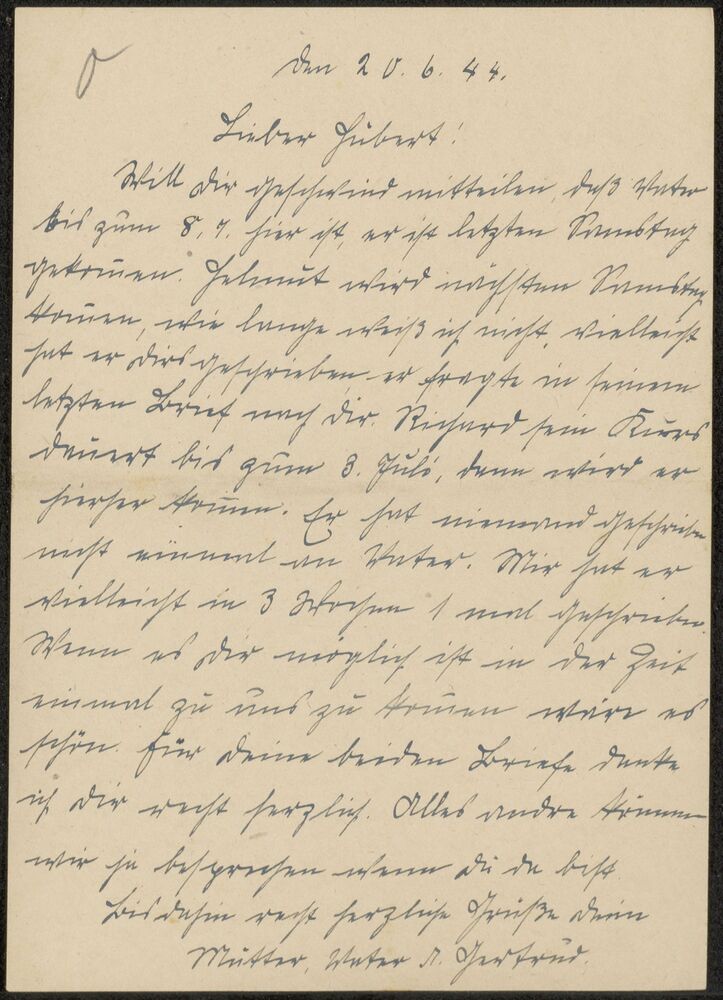 Den 20. 6. 44.
Lieber Hubert!
Will Dir geschwind mitteilen, daß Vater
bis zum 8. 7. hier ist, er ist letzten Samstag
gekom̅en. Helmut wird nächsten Samstag
kom̅en, wie lange weiß ich nicht, vielleicht
hat er Dirs geschrieben er fragte in seinem
letzten Brief nach Dir. Richard sein Kurs
dauert bis zum 3. Juli, dann wird er
hierher kom̅en. Er hat niemand geschrieben
nicht einmal an Vater. Mir hat er
vielleicht in 3 Wochen 1 mal geschrieben.
Wenn es Dir möglich ist in der Zeit
einmal zu uns zu kom̅en wäre es
schön. Für Deine beiden Briefe danke
ich Dir recht herzlich. Alles andre können
wir ja besprechen wenn Du da bist.
Bis dahin recht herzliche Grüße Deine
Mutter, Vater u. Gertrud.